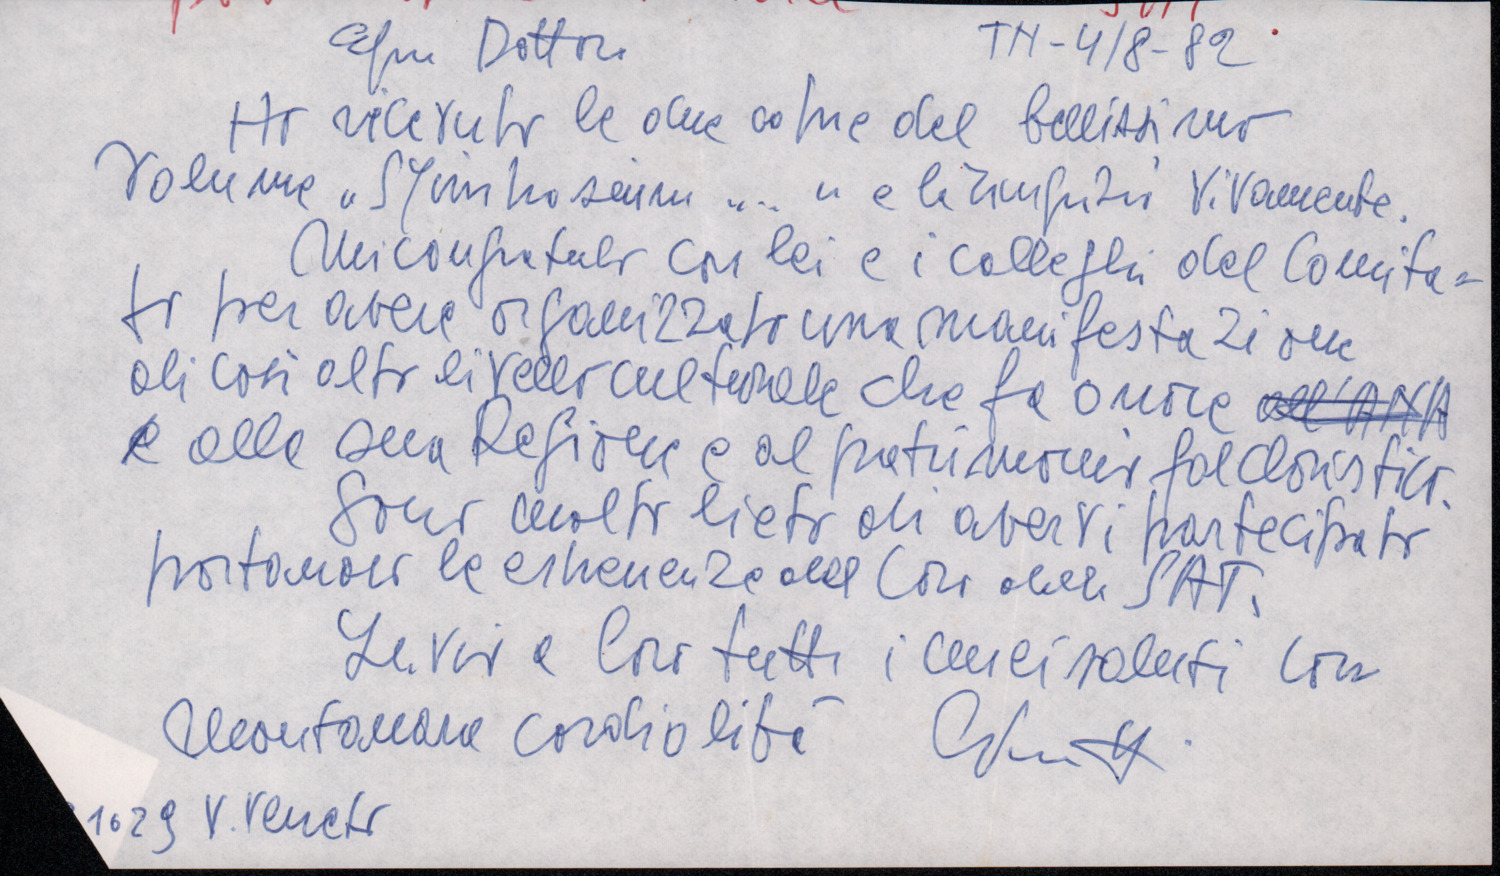 Egr Dottore TN-4/8-82
Ho ricevuto le due copie del bellissimo
volume "Symphosium ...." e la ringrazio vivamente.
Mi congratulo con lei e i colleghi del Comita=
to per avere organizzato una manifestazione
di così alto livello culturale che fa onore all'ANA
e alla sua Regione e al patrimonio folcloristico.
Sono molto lieto di avervi partecipato
portando le esperienze del Coro della SAT.
Invio a loro tutti i miei saluti con
montanara cordialità
V. Veneto